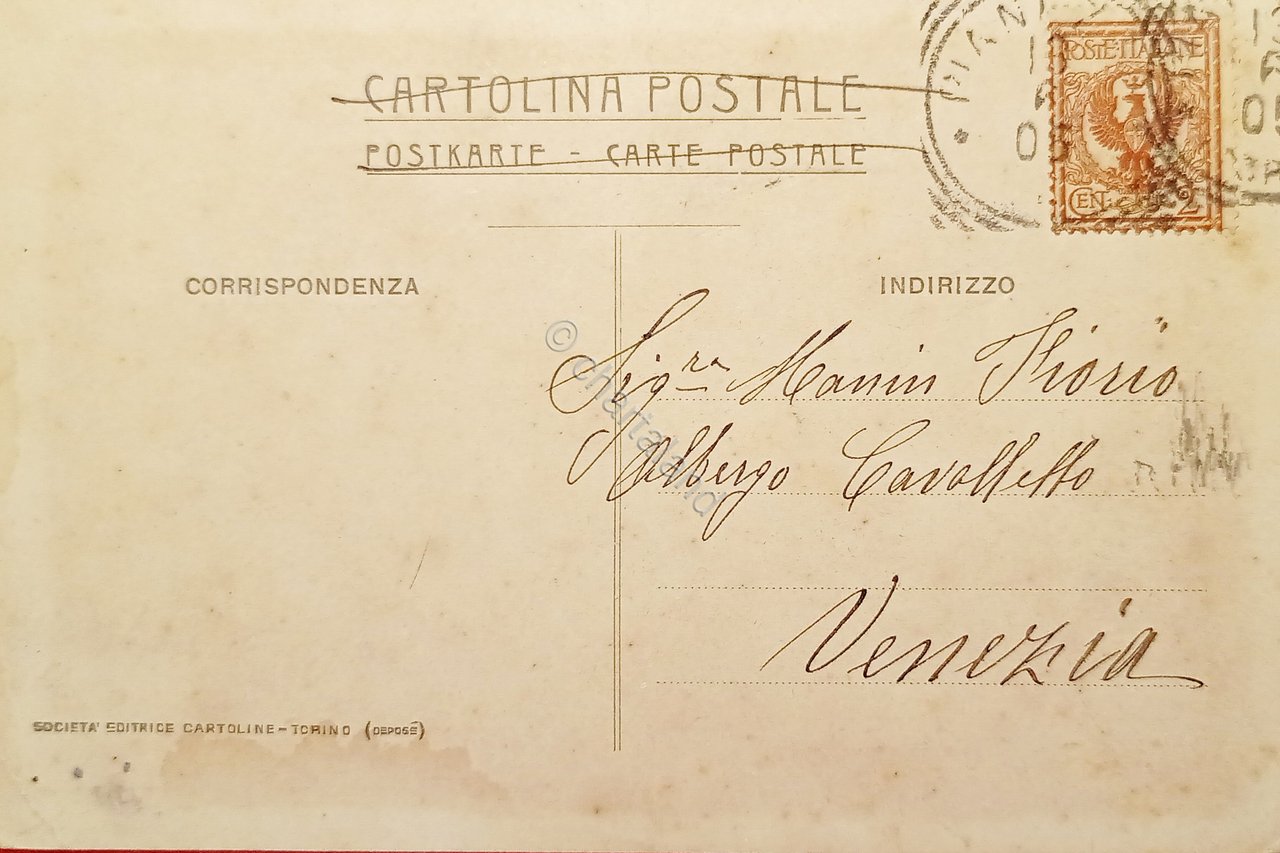 CARTOLINA POSTALE
POSTKARTE - CARTE POSTALE
POSTE·ITALIANE
CEN. 2
CORRISPONDENZA
INDIRIZZO
Sigra Manin
Albergo Cavalletto
Venezia
SOCIETA' EDITRICE CARTOLINE - TORINO (DEPOSÉ)
© chartaland